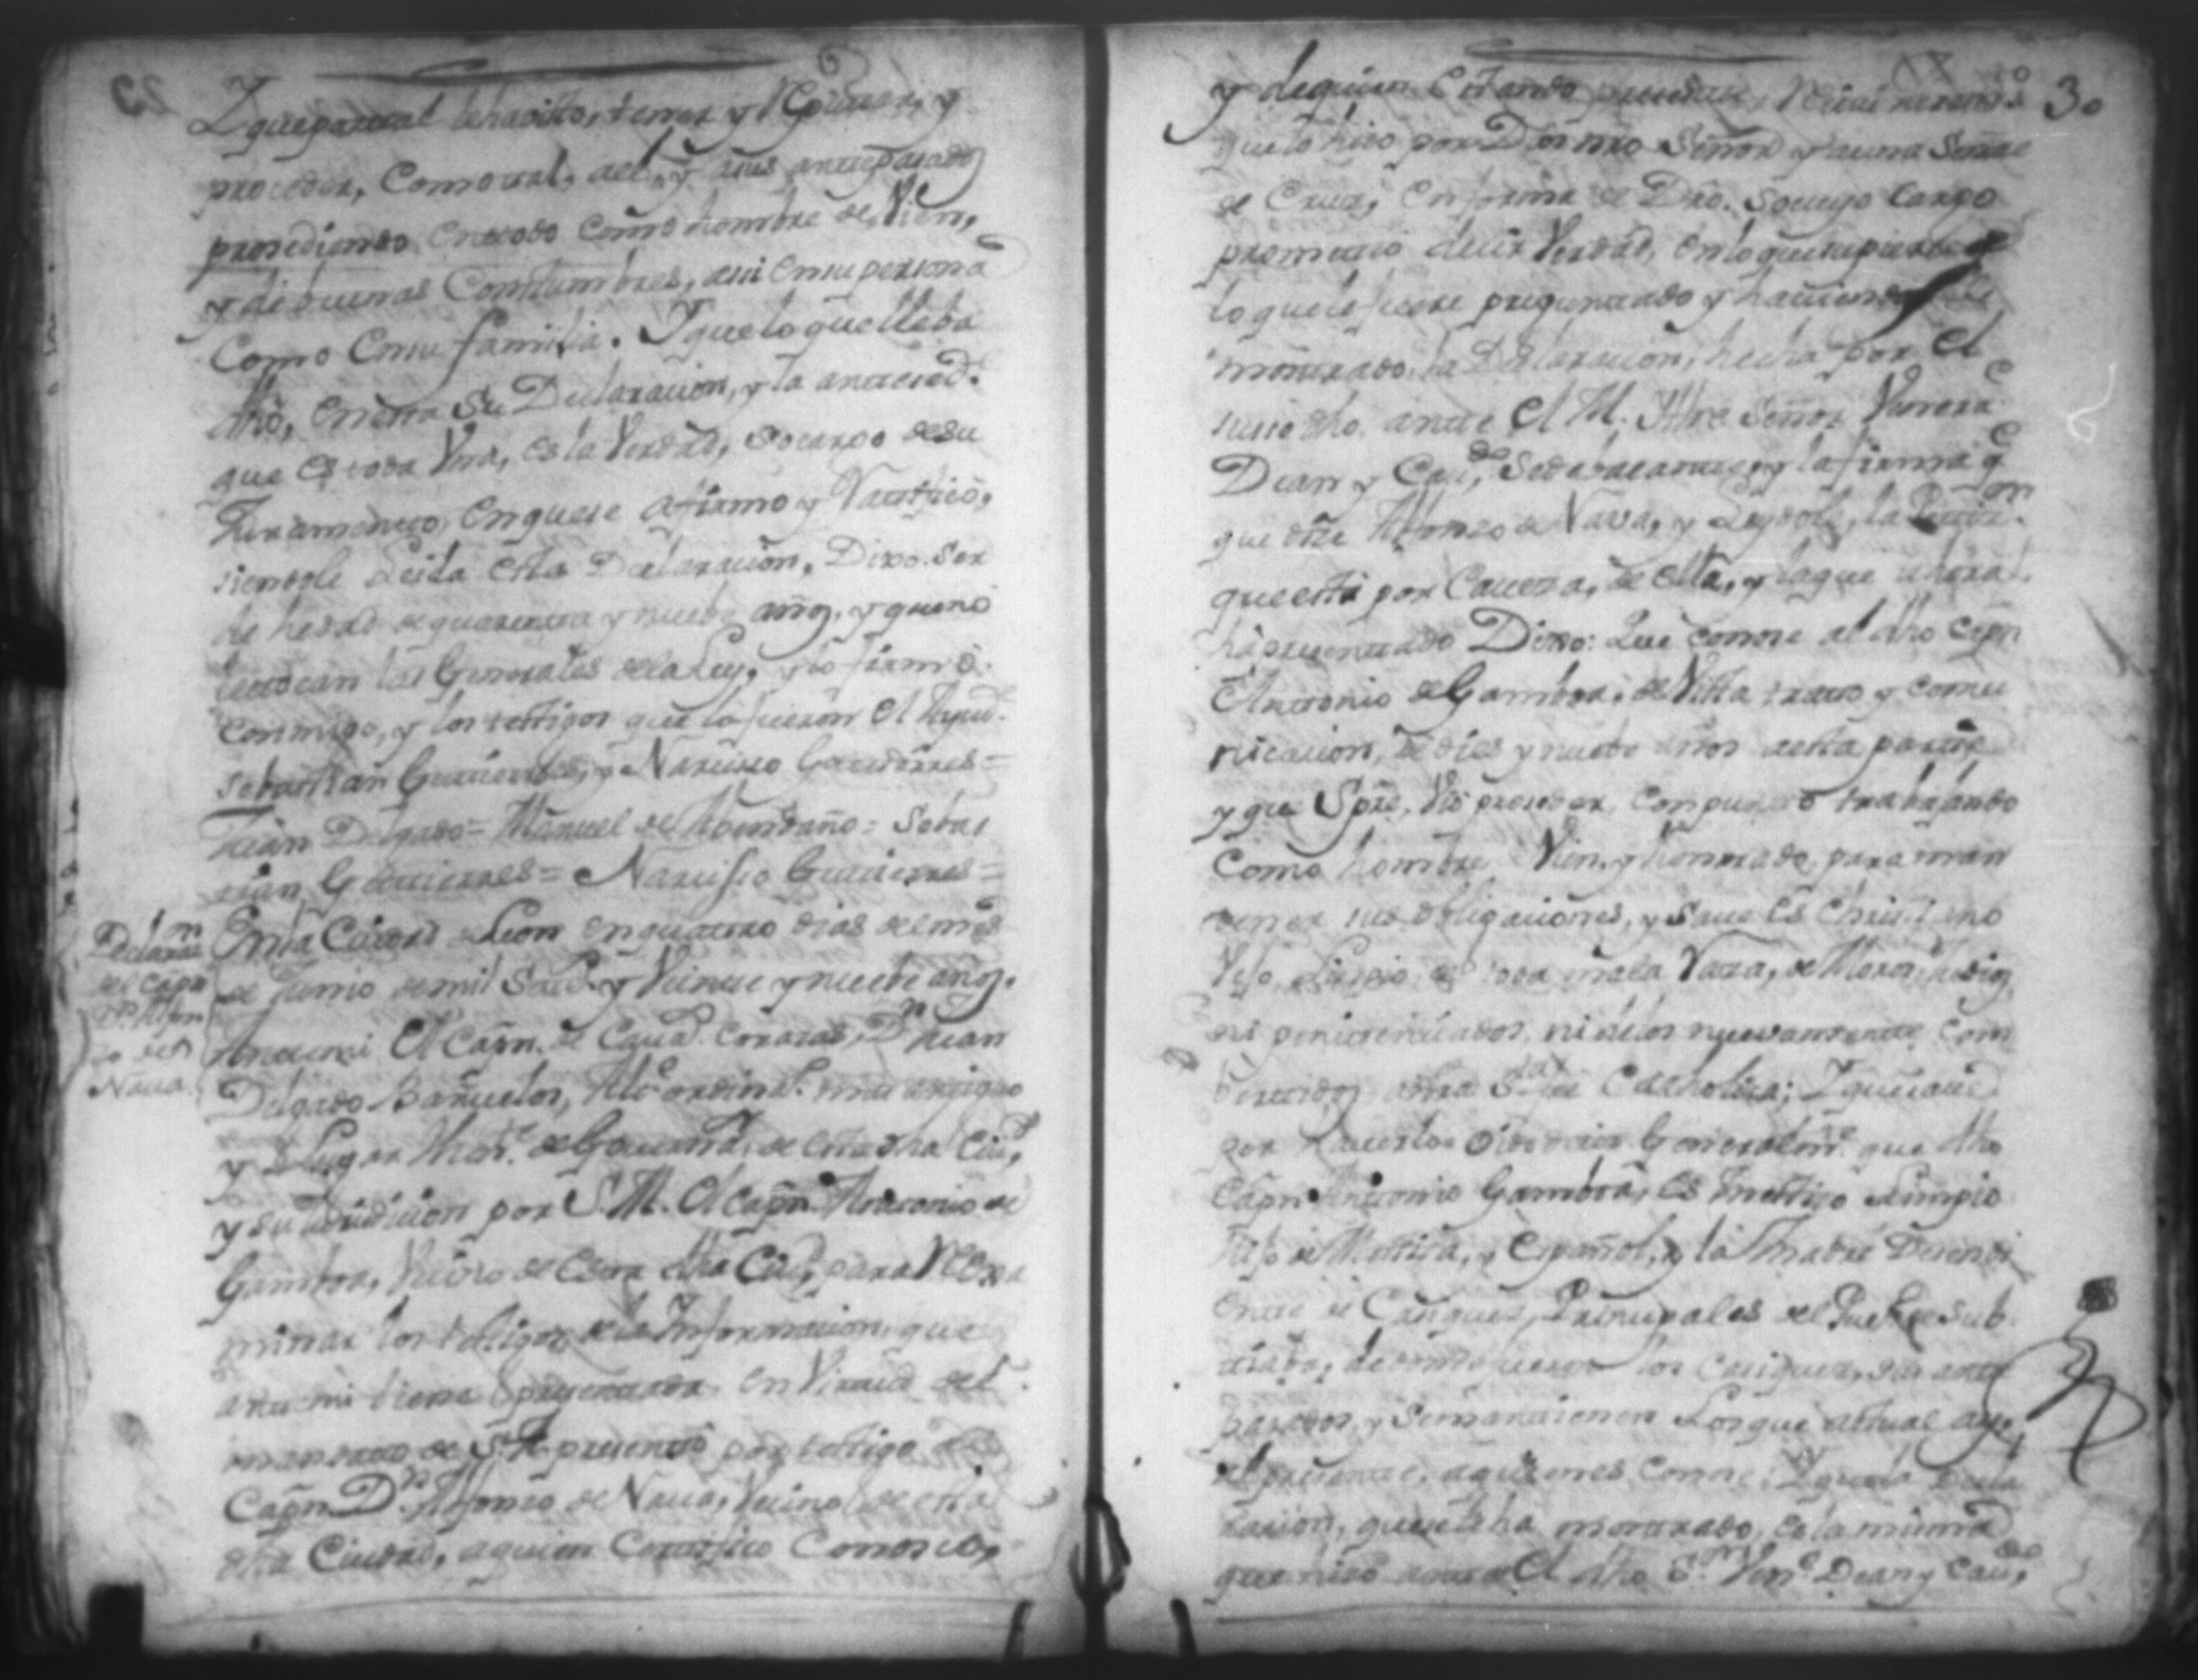 Y que por tal lo ha visto, tener y
proceder, como tal, ael, y asus antepasados
prosediendo entodo como hombre de Vien,
y de buenas Constumbres, asi ensu persona
Como Ensu familia. Y que lo que lleba
dho, en esta su Declaracion, y la antesed.te
que es toda Una, es la Verdad, so cargo desu
Juramento, enquese afirmo y Ratifico,
siendole Leida esta Declaracion, Dixo. ser
de hedad de quarenta y nuebe años, y que no
le tocan las Generales dela Ley, y lo firmo
conmigo, y los testigos que lo fueron el Ayud.te
Sebastian Gutierres, y Narciso Gutierres =
Juan Delgado = Manuel de Abendaño = Sebas
tian Gutierres = Narciso Gutierres =
Declaras.on
del Capn
Dn Alfon
so de
Nava
En la Ciudad de Leon en quatro dias del mes
de Junio de mil Setes.s y Veinte y nuebe años.
Ante mi El Capn. de Cavas. Corazas, Dn Juan
Delgado Bañuelos, Alce ordin.o mas antiguo
y Lugar Then.te de Govern.or de esta dha Ciu.d
y su Jurisdicion por S.M. El Capn. Antonio de
Gamboa, Vecino de esta dha Ciu.d para Exa
minar los testigos de la Informacion, que
ante mi tiene presentada en Virtud del
mandato de S.A. presento por testigo al
Capn. Dn Alfonso de Nava, Vecino de esta
dha Ciudad, aquien Certifico Conosco,
30
y de quien estando presente, Recivi Juram.to
que lo hiso por Dios nro Señor y a una Señal
de Cruz, en forma de Dro. so cuyo cargo
prometio decir Verdad, en lo que supiere
lo que le fuere preguntado y haviendole
mostrado la Declaracion, hecha por el
suso dho. ante El M. Iltre Señor Venera.e
Dean y Cav.do Sede bacante, y la firma q.e
que dise Alfonso de Nava, y Leydole, la Petiz.on
que esta por Caveza, de esta, y la que ahora
ha presentado Dixo: Que conose al dho Capn
Antonio de Gamboa, de Vista trato y comu
nicacion, de dies y nuebe años a esta parte
y que Spre. Vio proceder, con puntto trabajando
Como hombre Vien, y honrrado, para man
tener sus obligaciones, y save es Christiano
Vejo, Limpio de toda mala Raza, de Moros, Judios,
ni penitenciados, ni delos nuevamente Com
bertidos anra S.ta fee Catholica; Y que save
por haverlo oido decir Generalm.te que dho
Capn. Antonio Gamboa, es mestiso Limpio
hijo de Mestisa, y Español, y la Madre Desendi
ente de Casiques, Principales del Pueblo de Sub
tiaba, de donde fueron los Casiques, sus ante
pasados, y se mantienen Los que actual ay,
al presente, aquienes Conose; Y que la Decla
racion, que se le ha mostrado, es la misma
que hiso ante El dho S.or Ven.e Dean y Cav.do